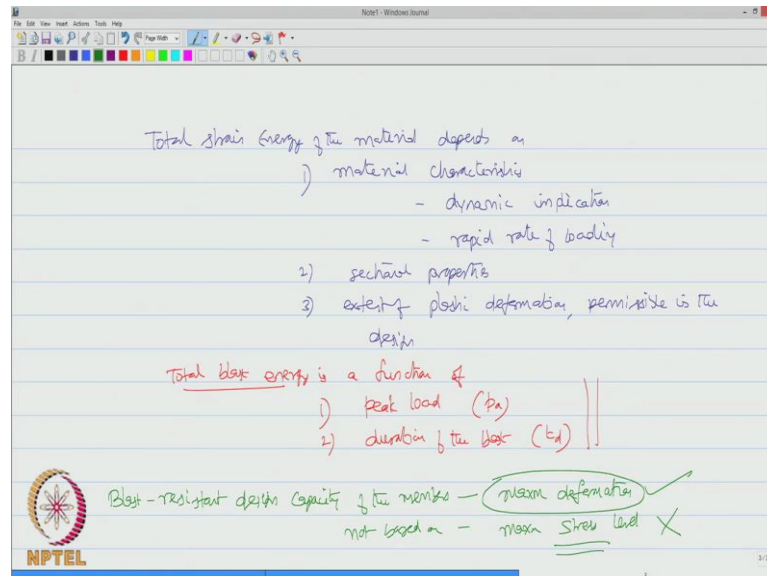 Note1 - Windows Journal
File Edit View Insert Actions Tools Help
Page Width
B I
Total strain Energy of the material depends on
1) material characteristics
- dynamic indication
- rapid rate of loading
2) sectional properties
3) extent of plastic deformation, permissible in the
design
Total blast energy is a function of
1) peak load (pa)
2) duration of the blast (td)
Blast-resistant design capacity of the member - maxm deformation ✓
not based on - maxm stress level X
NPTEL